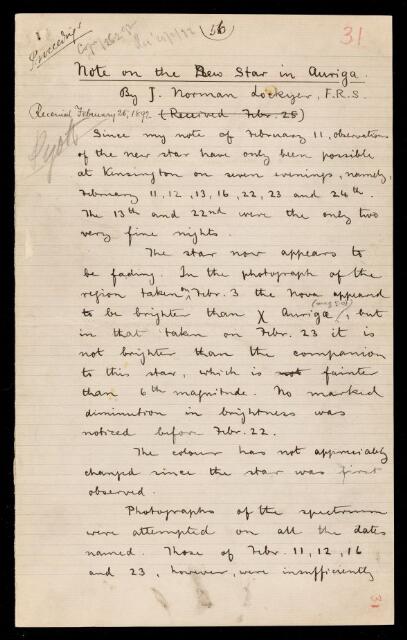 Proceedings
56
31
Note on the New Star in Auriga.
By J. Norman Lockyer, F.R.S.
Received February 26, 1892 (Received Febr. 25)
Since my note of February 11, observations
of the new star have only been possible
at Kensington on seven evenings, namely,
February 11, 12, 13, 16, 22, 23 and 24th.
The 13th and 22nd were the only two
very fine nights.
The star now appears to
be fading. In the photograph of the
region taken on Febr. 3 the Nova appeared
to be brighter than χ Aurigæ (mag 5.0), but
in that taken on Febr. 23 it is
not brighter than the companion
to this star, which is not fainter
than 6th magnitude. No marked
diminution in brightness was
noticed before Febr. 22.
The colour has not appreciably
changed since the star was first
observed.
Photographs of the spectrum
were attempted on all the dates
named. Those of Febr. 11, 12, 16
and 23, however, were insufficiently
31